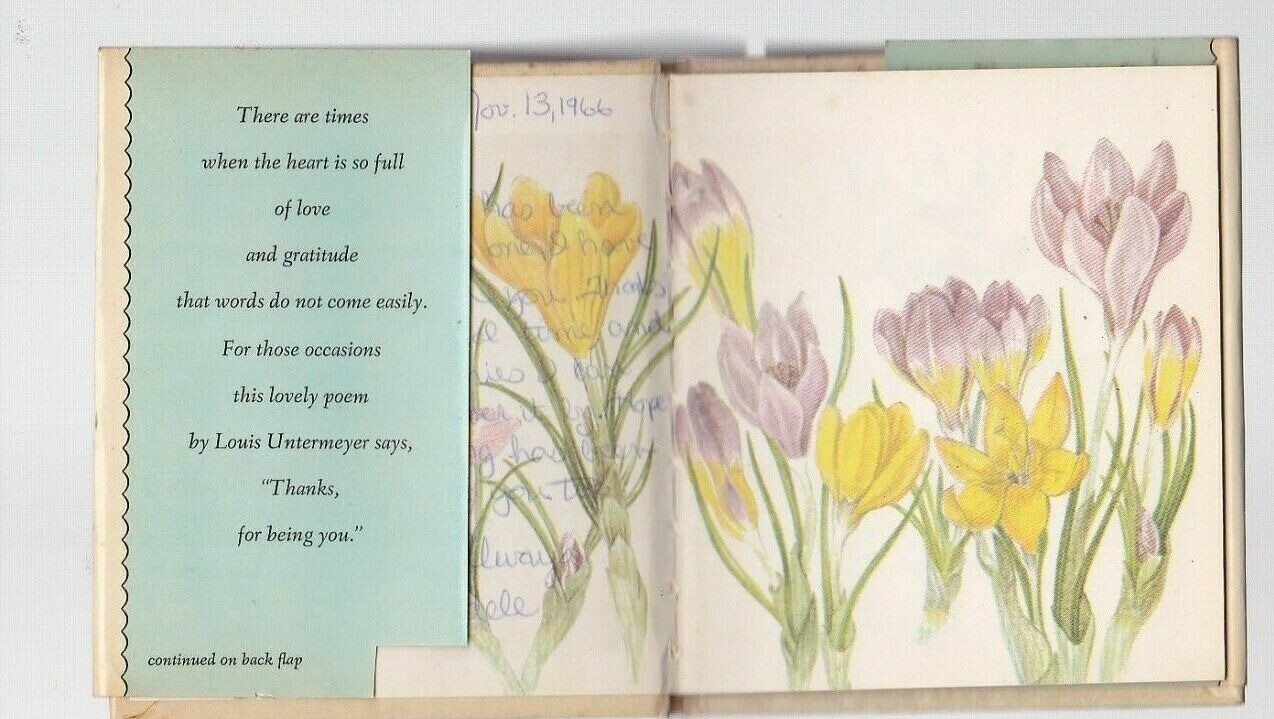 There are times
when the heart is so full
of love
and gratitude
that words do not come easily.
For those occasions
this lovely poem
by Louis Untermeyer says,
“Thanks,
for being you.”
continued on back flap
Nov. 13, 1966
has been
one, I have
you. Thanks
and
I
it by. Hope
you